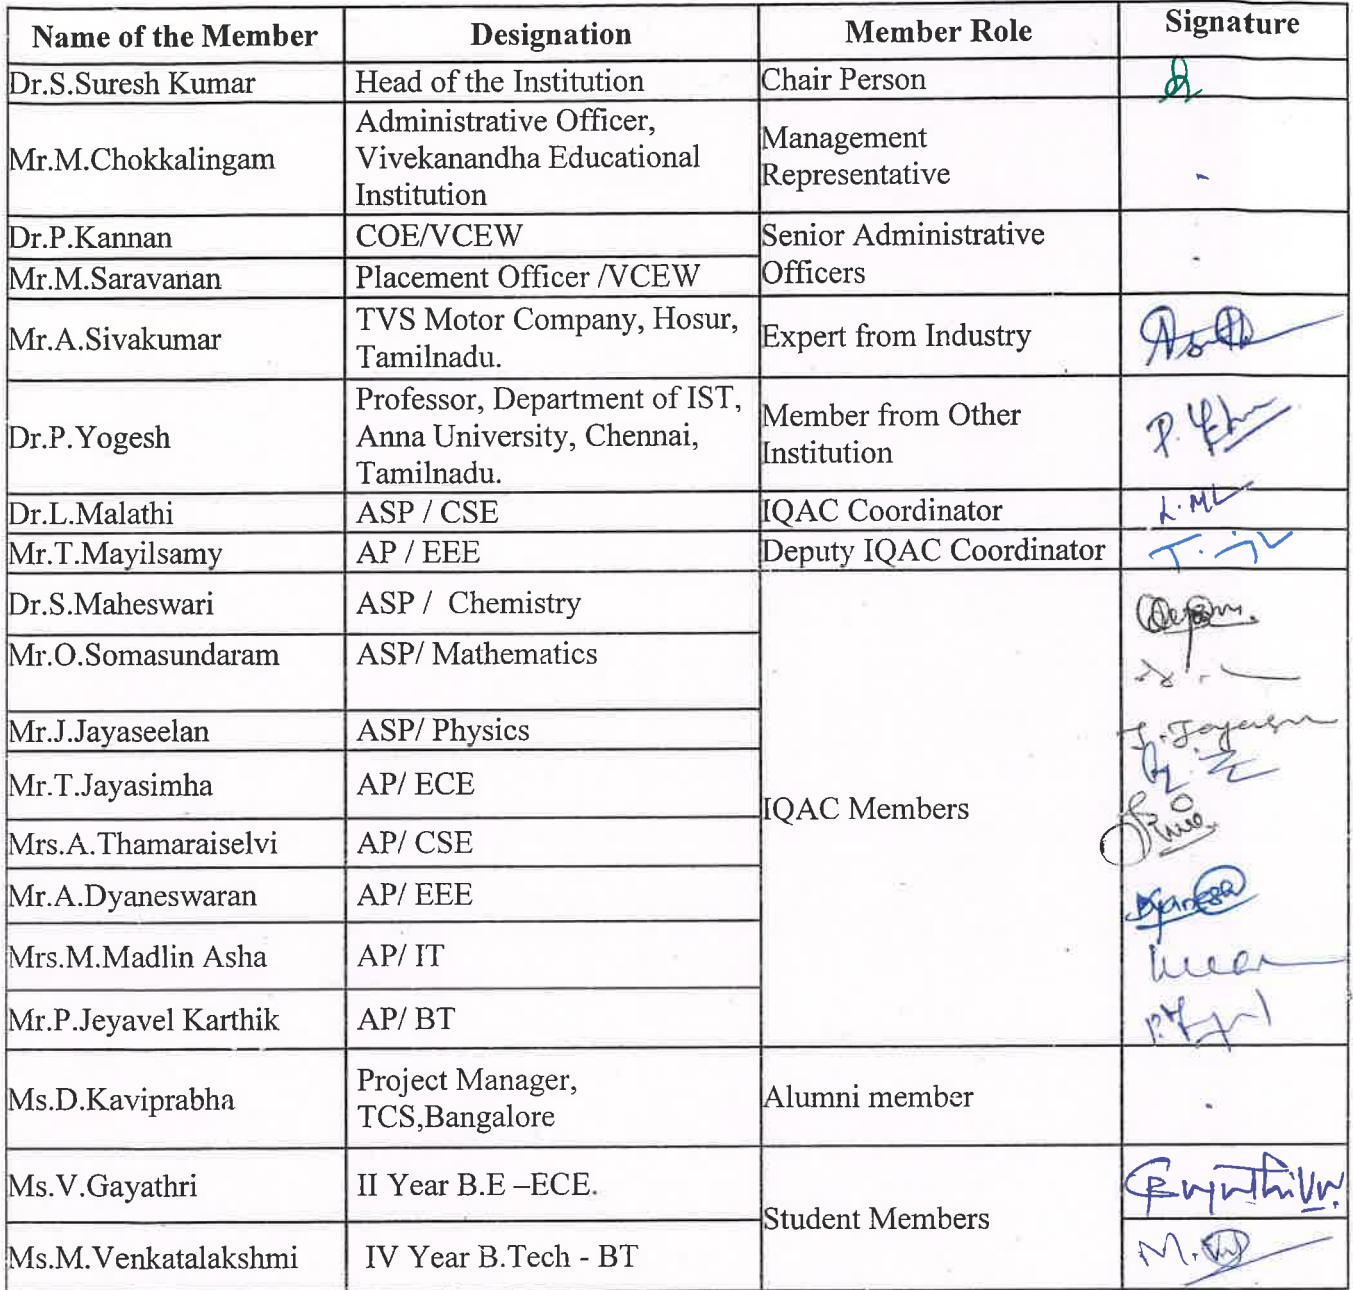 Name of the Member Designation Member Role Signature
Dr.S.Suresh Kumar Head of the Institution Chair Person
Mr.M.Chokkalingam Administrative Officer, Vivekanandha Educational Institution Management Representative
Dr.P.Kannan COE/VCEW Senior Administrative Officers
Mr.M.Saravanan Placement Officer /VCEW
Mr.A.Sivakumar TVS Motor Company, Hosur, Tamilnadu. Expert from Industry
Dr.P.Yogesh Professor, Department of IST, Anna University, Chennai, Tamilnadu. Member from Other Institution
Dr.L.Malathi ASP / CSE IQAC Coordinator
Mr.T.Mayilsamy AP / EEE Deputy IQAC Coordinator
Dr.S.Maheswari ASP / Chemistry
Mr.O.Somasundaram ASP/ Mathematics
Mr.J.Jayaseelan ASP/ Physics
Mr.T.Jayasimha AP/ ECE
IQAC Members
Mrs.A.Thamaraiselvi AP/ CSE
Mr.A.Dyaneswaran AP/ EEE
Mrs.M.Madlin Asha AP/ IT
Mr.P.Jeyavel Karthik AP/ BT
Ms.D.Kaviprabha Project Manager, TCS,Bangalore Alumni member
Ms.V.Gayathri II Year B.E –ECE.
Student Members
Ms.M.Venkatalakshmi IV Year B.Tech - BT